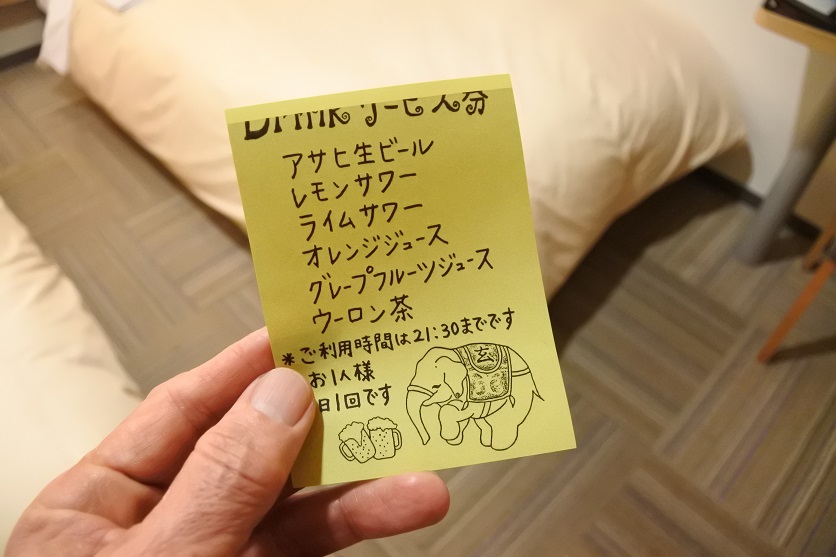 Drink サービス券
アサヒ生ビール
レモンサワー
ライムサワー
オレンジジュース
グレープフルーツジュース
ウーロン茶
*ご利用時間は21:30までです
お1人様
日1回です
玄